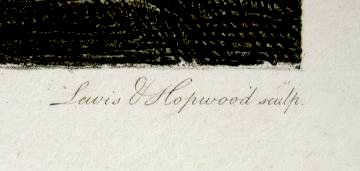 Lewis & Hopwood sculp.